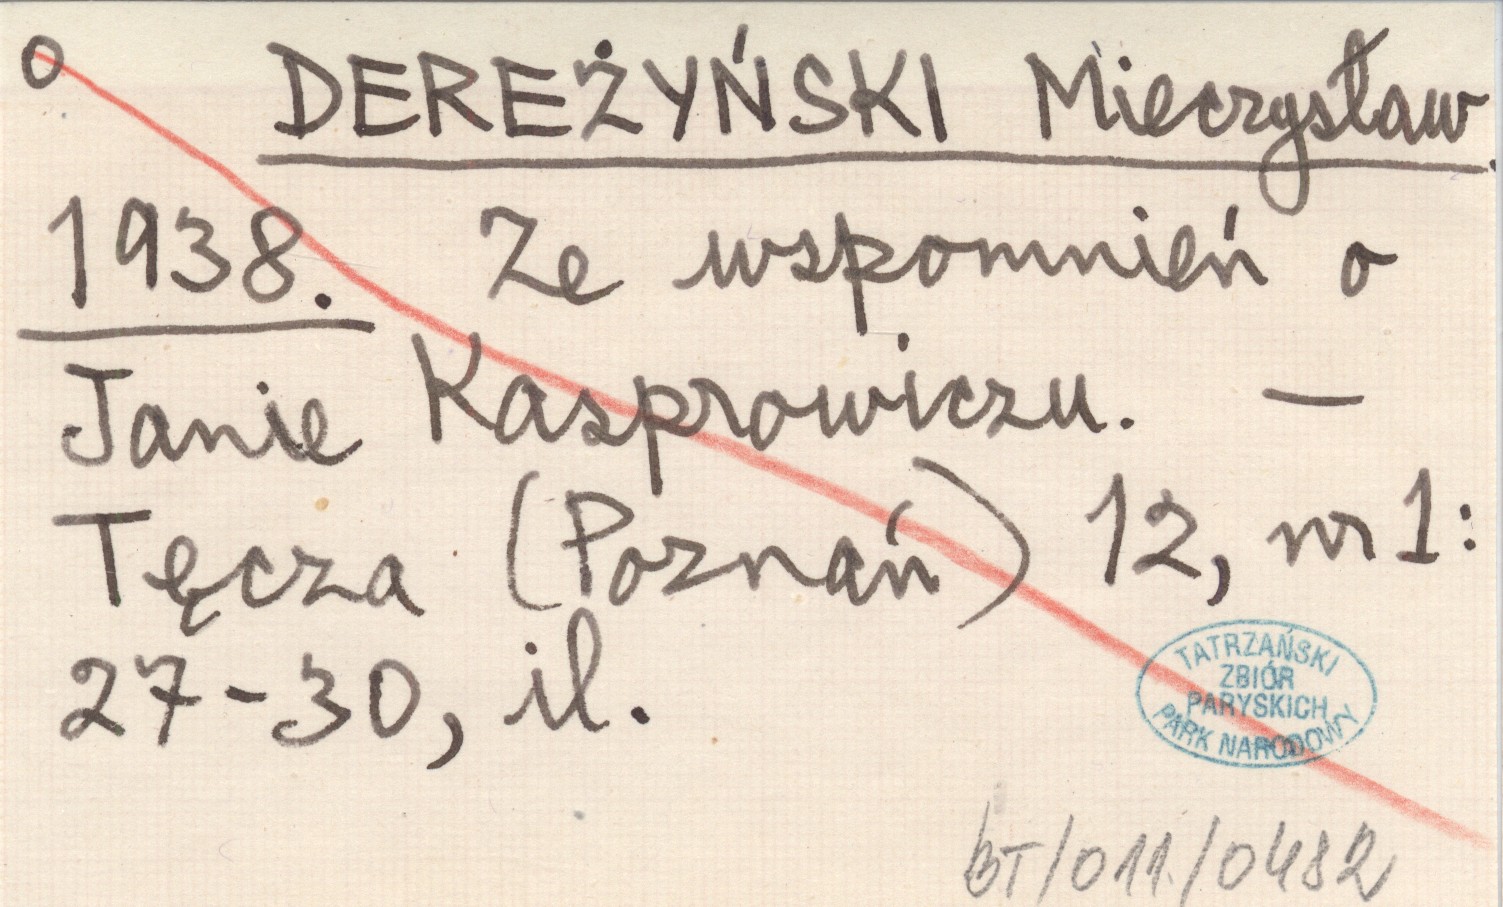 o DEREŻYŃSKI Mieczysław.
1938. Ze wspomnień o
Janie Kasprowiczu. —
Tęcza (Poznań) 12, nr 1:
27-30, il.
TATRZAŃSKI
ZBIÓR
PARYSKICH
PARK NARODOWY
BT/011/0482